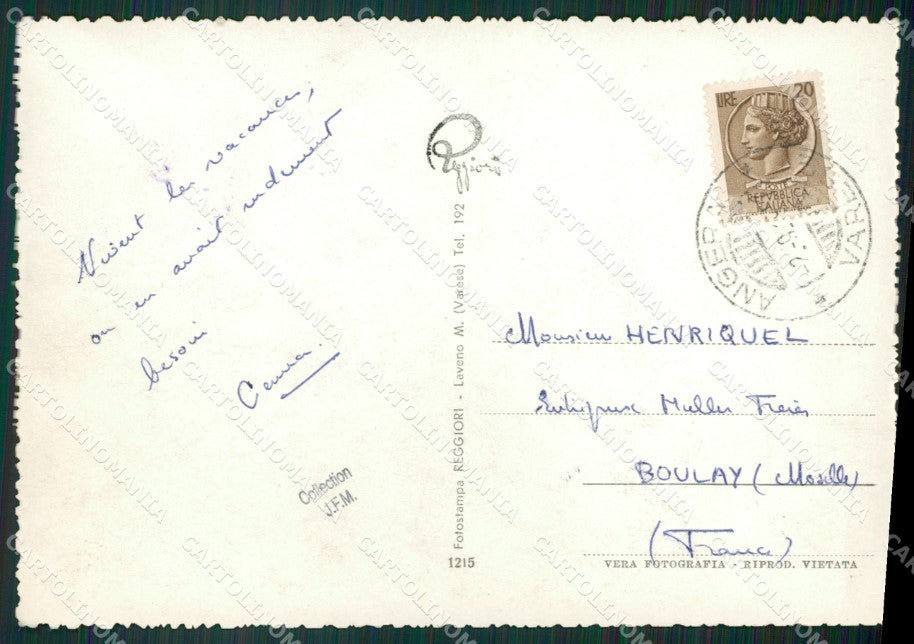 Vivent les vacances,
on en avait rudement
besoin
Reggiori
Fotostampa REGGIORI - Laveno M. (Varese) Tel. 192
1215
LIRE 20
POSTE
REPVBBLICA
ITALIANA
ANGERA
VARESE
Monsieur HENRIQUEL
Entreprise Muller Frères
BOULAY (Moselle)
(France)
VERA FOTOGRAFIA - RIPROD. VIETATA
Collection
J.F.M.
CARTOLINOMANIA